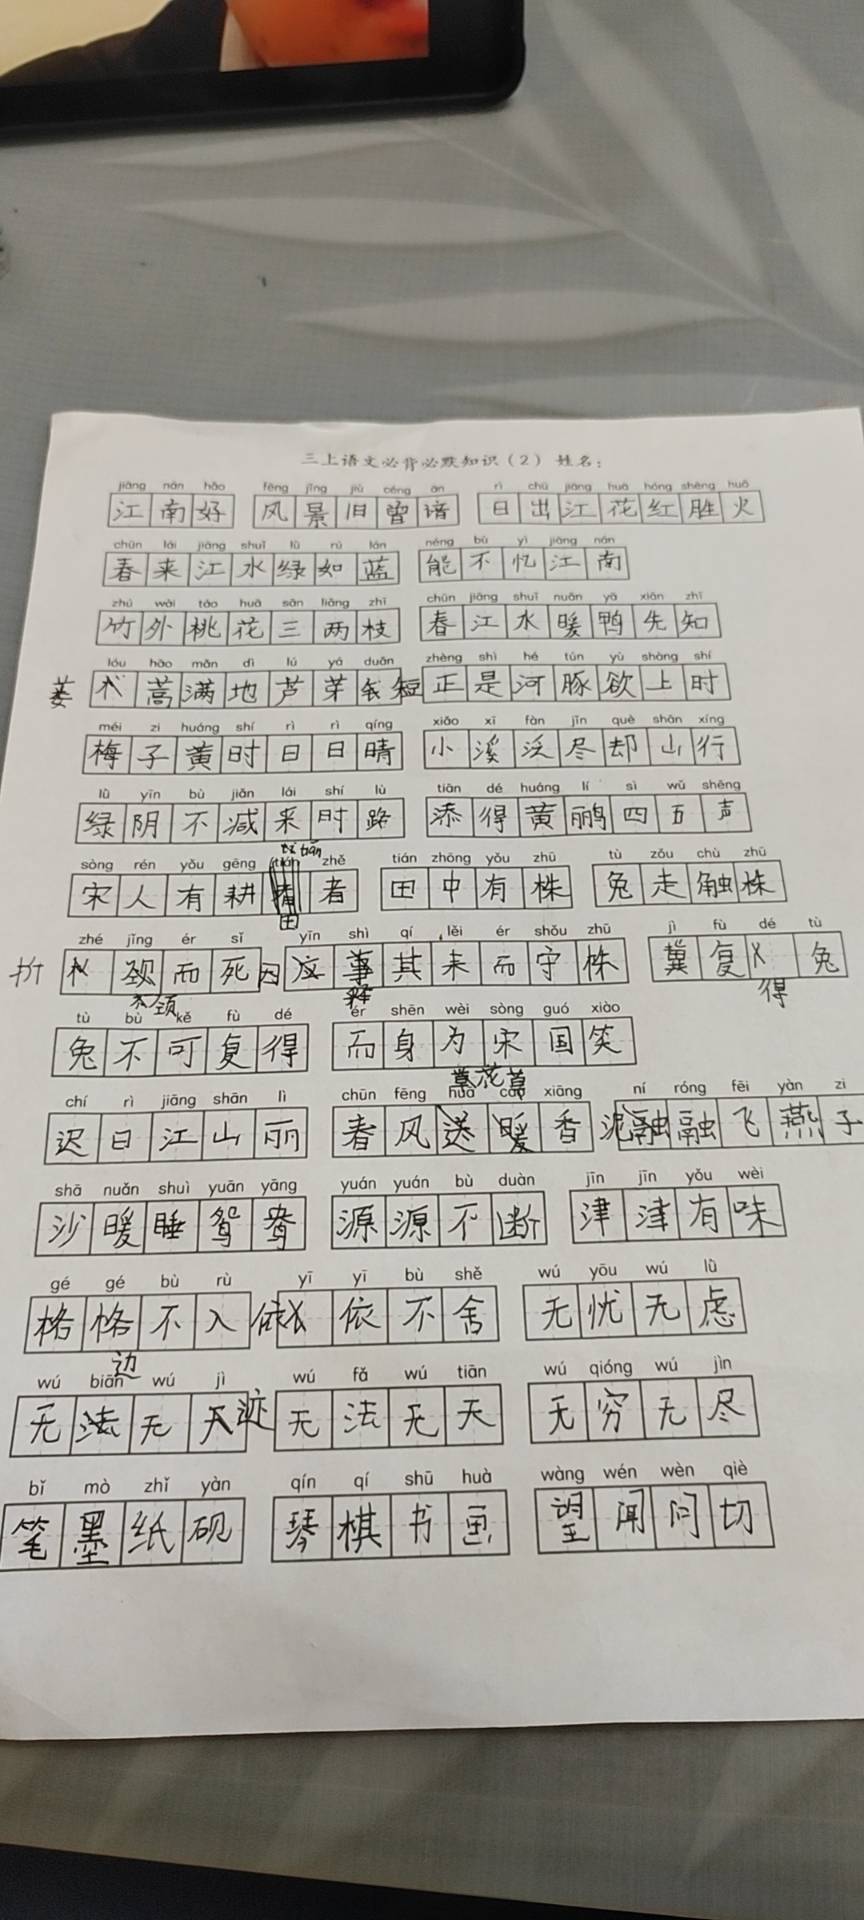 三上语文必背必默知识（2） 姓名：
jiāng nán hǎo fēng jǐng jiù céng ān rì chū jiāng huā hóng shèng huǒ
江南好 风景旧曾谙 日出江花红胜火
chūn lái jiāng shuǐ lǜ rú lán néng bù yì jiāng nán
春来江水绿如蓝 能不忆江南
zhú wài táo huā sān liǎng zhī chūn jiāng shuǐ nuǎn yā xiān zhī
竹外桃花三两枝 春江水暖鸭先知
lóu hāo mǎn dì lú yá duǎn zhèng shì hé tún yù shàng shí
蒌 蒿满地芦芽 短 正是河豚欲上时
méi zi huáng shí rì rì qíng xiǎo xī fàn jìn què shān xíng
梅子黄时日日晴 小溪泛尽却山行
lǜ yīn bù jiǎn lái shí lù tiān dé huáng lí sì wǔ shēng
绿阴不减来时路 添得黄鹂四五声
tián
sòng rén yǒu gēng tián zhě tián zhōng yǒu zhū tù zǒu chù zhū
宋人有耕 者 田中有株 兔走触株
田
zhé jǐng ér sǐ yīn shì qí lěi ér shǒu zhū jì fù dé tù
折 颈而死 因 其耒而守株 冀复 兔
颈 释 得
tù bù kě fù dé ér shēn wèi sòng guó xiào
兔不可复得 而身为宋国笑
花草
chí rì jiāng shān lì chūn fēng huā cǎo xiāng ní róng fēi yàn zi
迟日江山丽 春风送暖香 泥融融飞燕子
shā nuǎn shuì yuān yāng yuán yuán bù duàn jīn jīn yǒu wèi
沙暖睡鸳鸯 源源不断 津津有味
gé gé bù rù yī yī bù shě wú yōu wú lǜ
格格不入 依 依不舍 无忧无虑
边
wú biān wú jì wú fǎ wú tiān wú qióng wú jìn
无法无天 迹 无法无天 无穷无尽
bǐ mò zhǐ yàn qín qí shū huà wàng wén wèn qiè
笔墨纸砚 琴棋书画 望闻问切